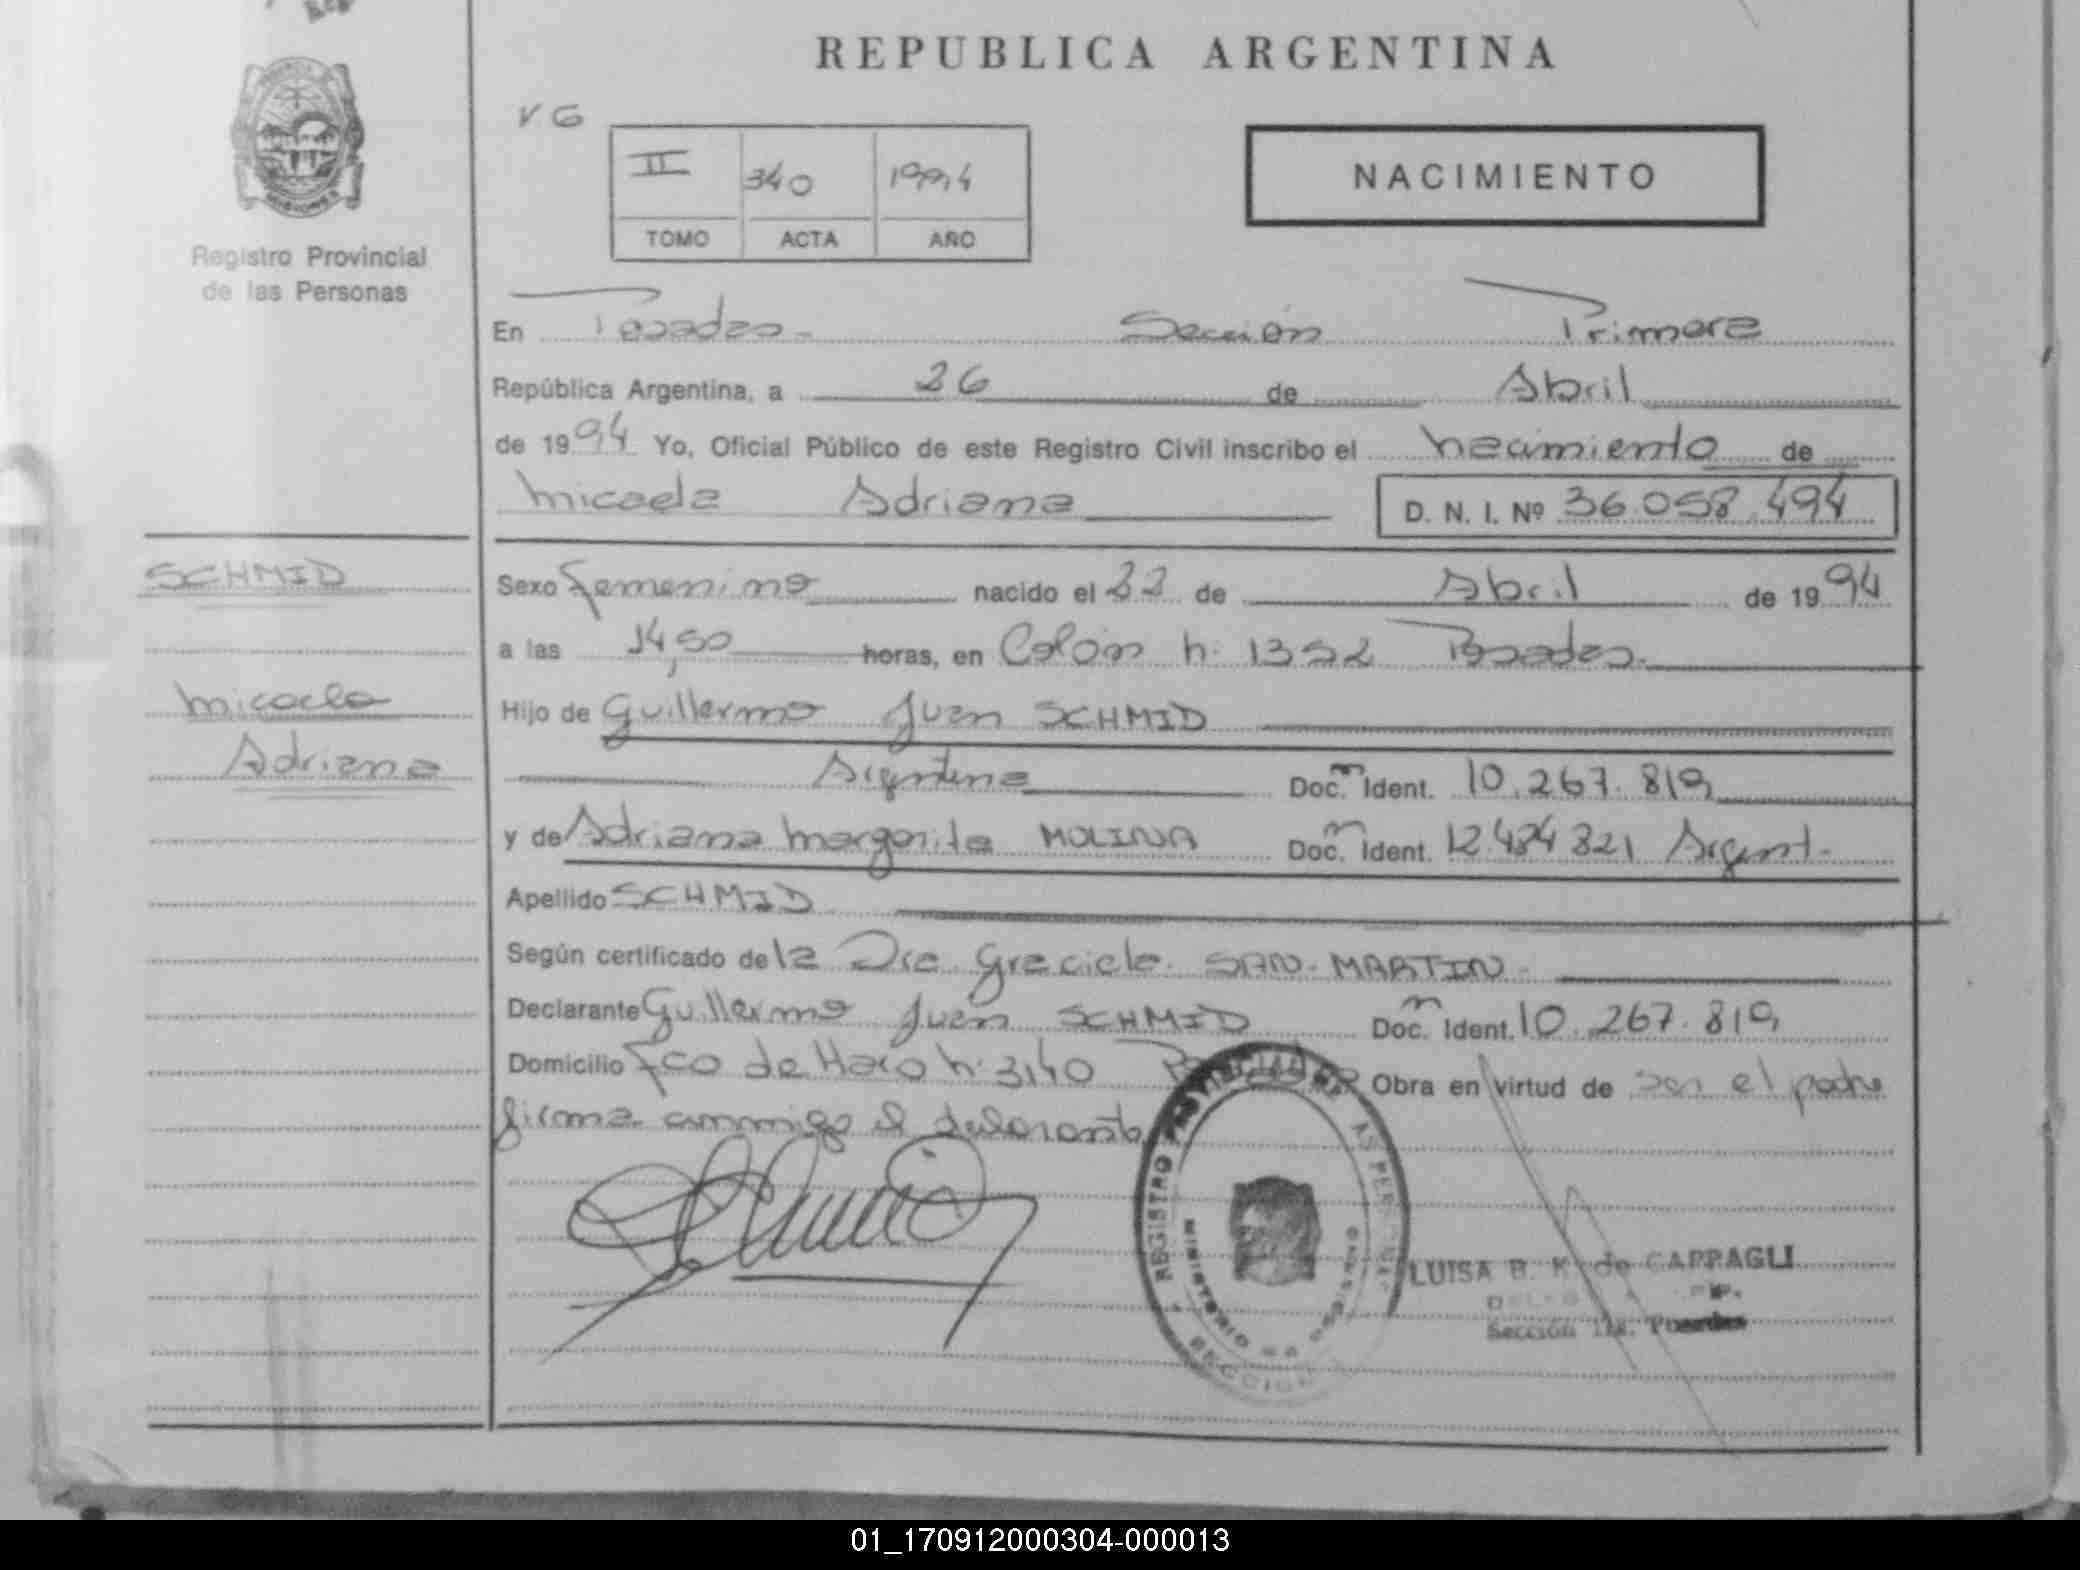 REPUBLICA ARGENTINA
VG
II 340 1994
TOMO ACTA AÑO
NACIMIENTO
Registro Provincial
de las Personas
En Posadas - Sección Primera
República Argentina, a 26 de Abril
de 1994 Yo, Oficial Público de este Registro Civil inscribo el nacimiento de
Micaela Adriana D. N. I. Nº 36.058.494
SCHMID
Micaela
Adriana
Sexo femenino nacido el 22 de Abril de 1994
a las 14,50 horas, en Colón n: 1352 Posadas.
Hijo de Guillermo Juan SCHMID
Argentina Doc. Ident. 10.267.819
y de Adriana Margarita MOLINA Doc. Ident. 12.484 821 Argent.
Apellido SCHMID
Según certificado de la Dra. Graciela SAN MARTIN
Declarante Guillermo Juan SCHMID Doc. Ident. 10.267.819
Domicilio Fco de Haro n: 3140 Obra en virtud de ser el padre
firma conmigo el declarante
REGISTRO PROVINCIAL DE LAS PERSONAS
MINISTERIO DE GOBIERNO
SECCION
LUISA B. K. de CAPPAGLI
Sección 1ra. Posadas
01_170912000304-000013